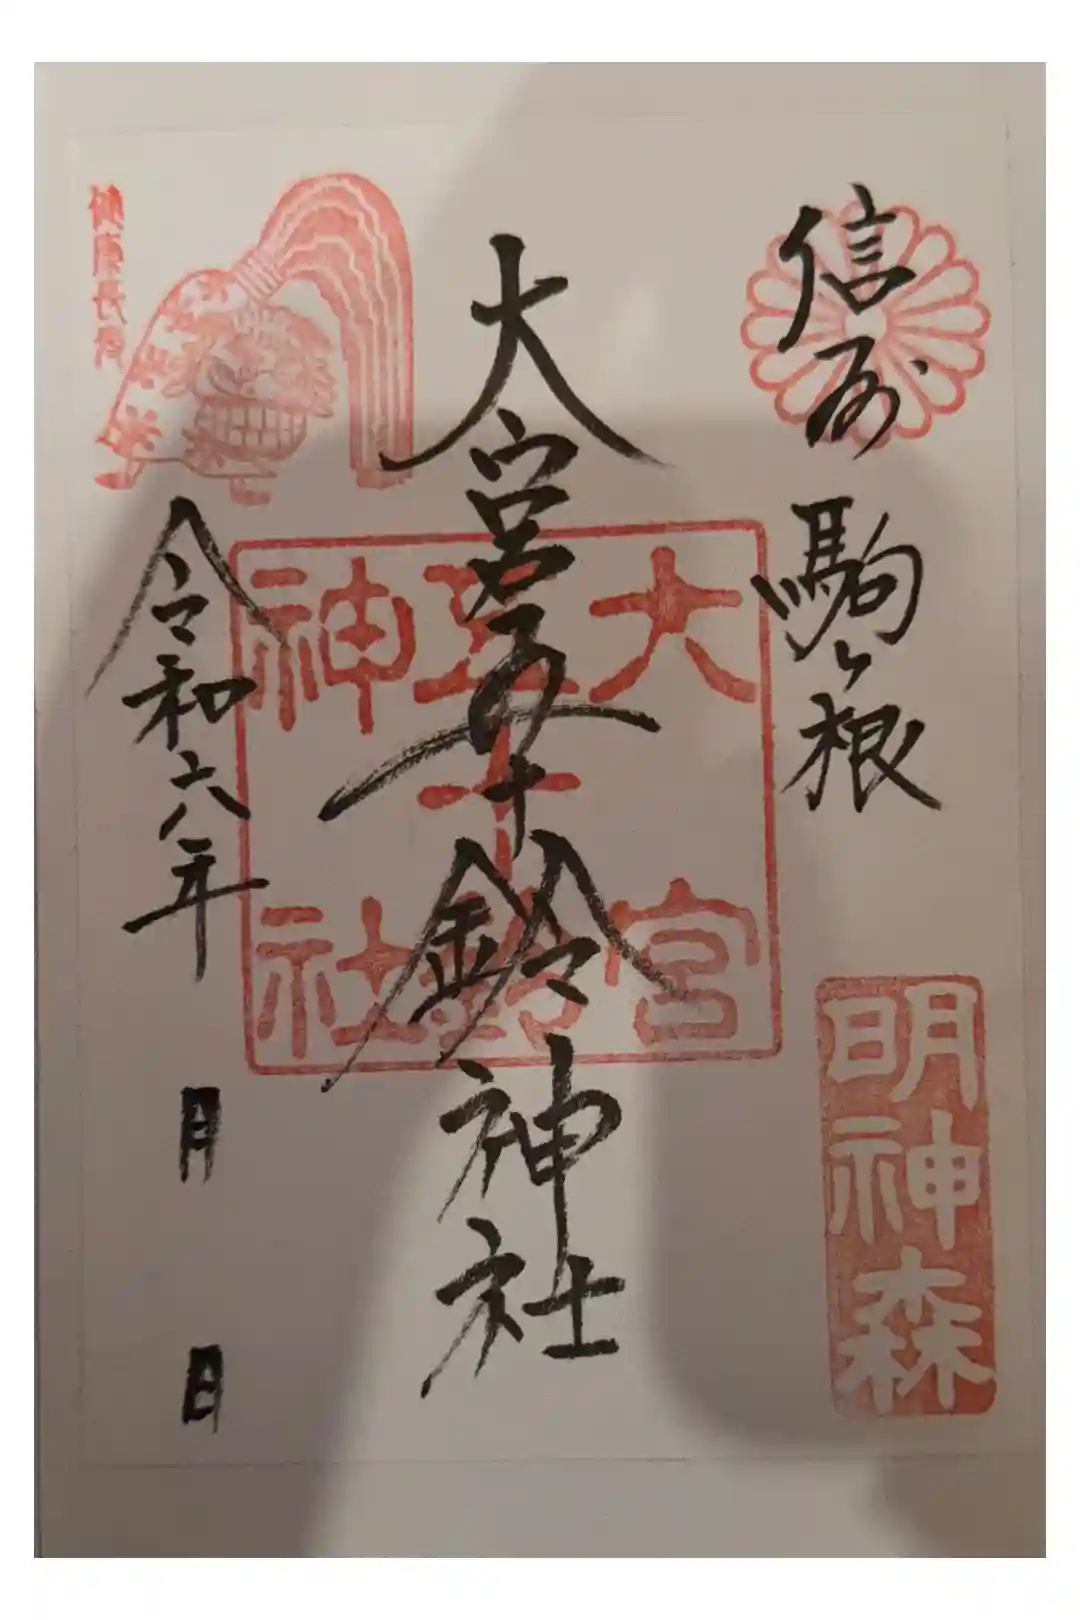 信州 駒ヶ根
明神森
大宮五十鈴神社
大宮
五十鈴
神社
健康長寿
令和六年 月 日